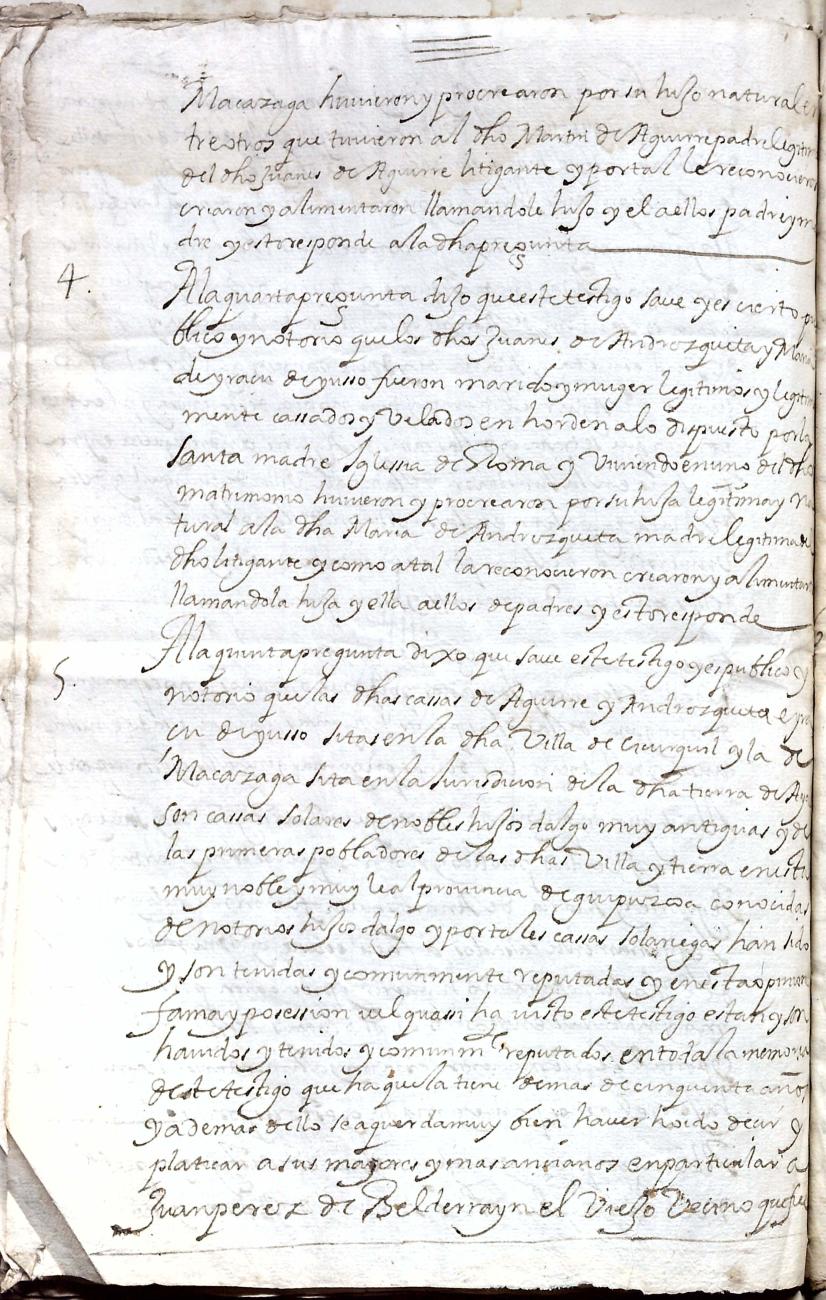 Macazaga huvieron y procrearon por su hijo natural en
tre otros que tuvieron al dho Martin de Aguirre padre legitimo
del dho Juanes de Aguirre litigante y por tal le reconocieron
criaron y alimentaron llamandole hijo y el a ellos padre y ma
dre y esto responde a la dha pregunta
4. A la quarta pregunta dijo que este testigo save y es cierto pu
blico y notorio que los dhos Juanes de Androzqueta y Maria
de yracu de yusso fueron marido y muger legitimos y legitima
mente cassados y Velados en horden a lo dispuesto por la
santa madre Iglesia de Roma y Viviendo en uno del dho
matrimonio huvieron y procrearon por su hija legitima y na
tural a la dha Maria de Androzqueta madre legitima de
dho litigante y como a tal la reconocieron criaron y alimentaron
llamandola hija y ella a ellos de padres y esto responde
5. A la quinta pregunta dixo que save este testigo y es publico y
notorio que las dhas cassas de Aguirre y Androzqueta e yra
cu de yusso sitas en la dha Villa de Cicurquil y la de
Macazaga sita en la Jurisdicion de la dha tierra de Aya
son cassas solares de nobles hijos dalgo muy antiguas y de
las primeras pobladores de las dhas Villa y tierra en esta
muy noble y muy leal provincia de guipuzcoa conocidas
de notorios hijos dalgo y por tales cassas solariegas han sido
y son tenidas y comunmente reputadas y en esta opinion
fama y posession vel quassi ha visto este testigo estan y son
havidos y tenidos y comunmte reputados en toda la memoria
deste testigo que ha que la tiene de mas de cinquenta años
y a demas dello se aquerda muy bien haver hoido decir y
platicar a sus mayores y mas ancianos en particular a
Juan perez de Belderrayn el Viejo Vecino que fue